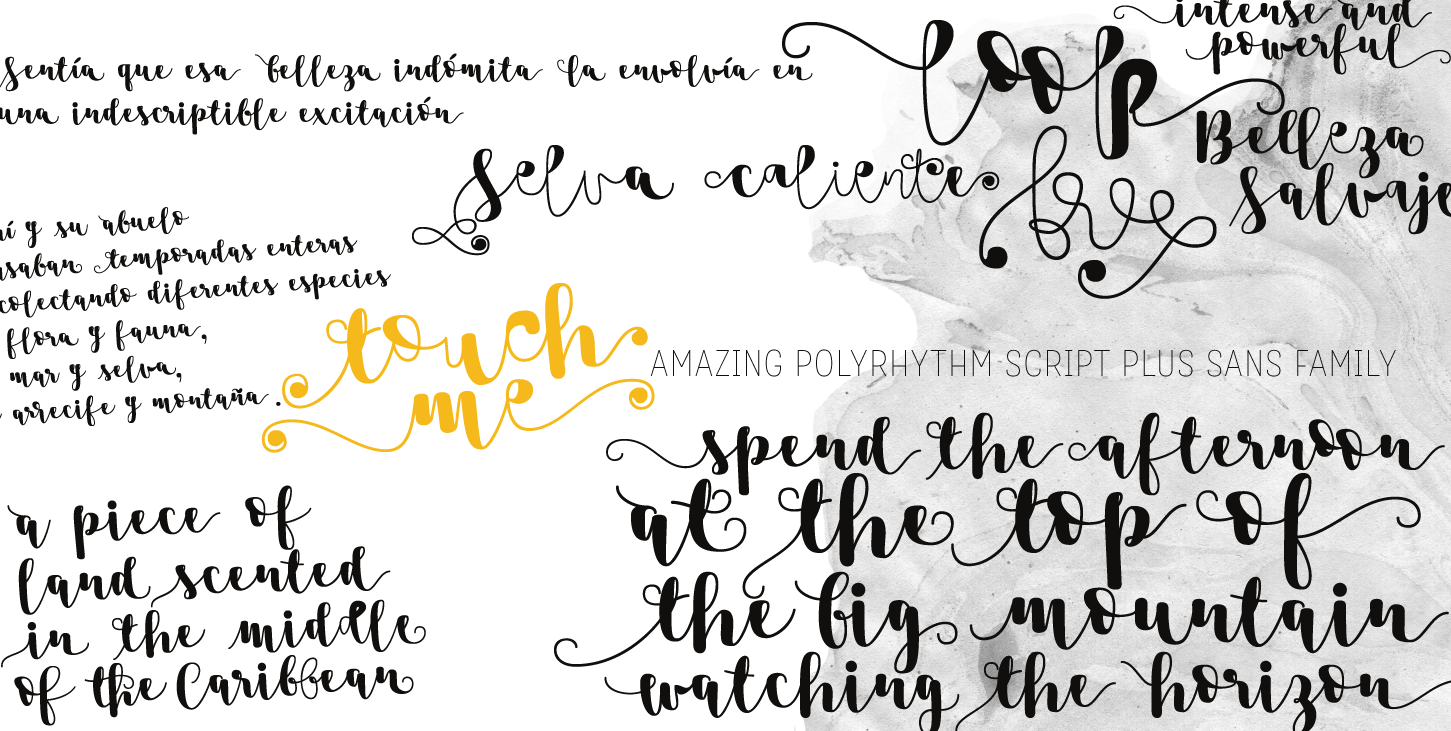 sentía que esa belleza indómita la envolvía en
una indescriptible excitación
loop
intense and
powerful
Belleza
Salvaje
selva caliente
love
y su abuelo
temporadas enteras
colectando diferentes especies
flora y fauna,
mar y selva,
arrecife y montaña.
touch
me
AMAZING POLYRHYTHM SCRIPT PLUS SANS FAMILY
a piece of
land scented
in the middle
of the Caribbean
spend the afternoon
at the top of
the big mountain
watching the horizon